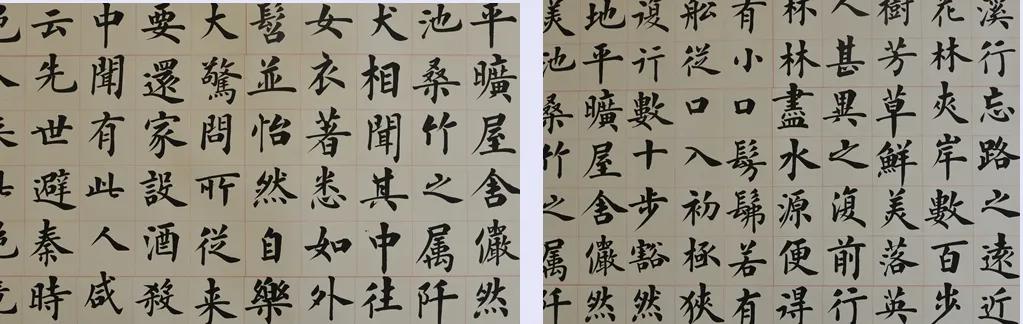 溪行忘路之遠近
花林夾岸數百步
樹芳草鮮美落英
人甚異之復前行
林林盡水源便得
有小口髣髴若有
舩從口入初極狹
復行數十步豁然
地平曠屋舍儼然
美池桑竹之属阡
平曠屋舍儼然
池桑竹之属阡
犬相聞其中往
女衣著悉如外
髫並怡然自樂
大驚問所從来
要還家設酒殺
中聞有此人咸
云先世避秦時